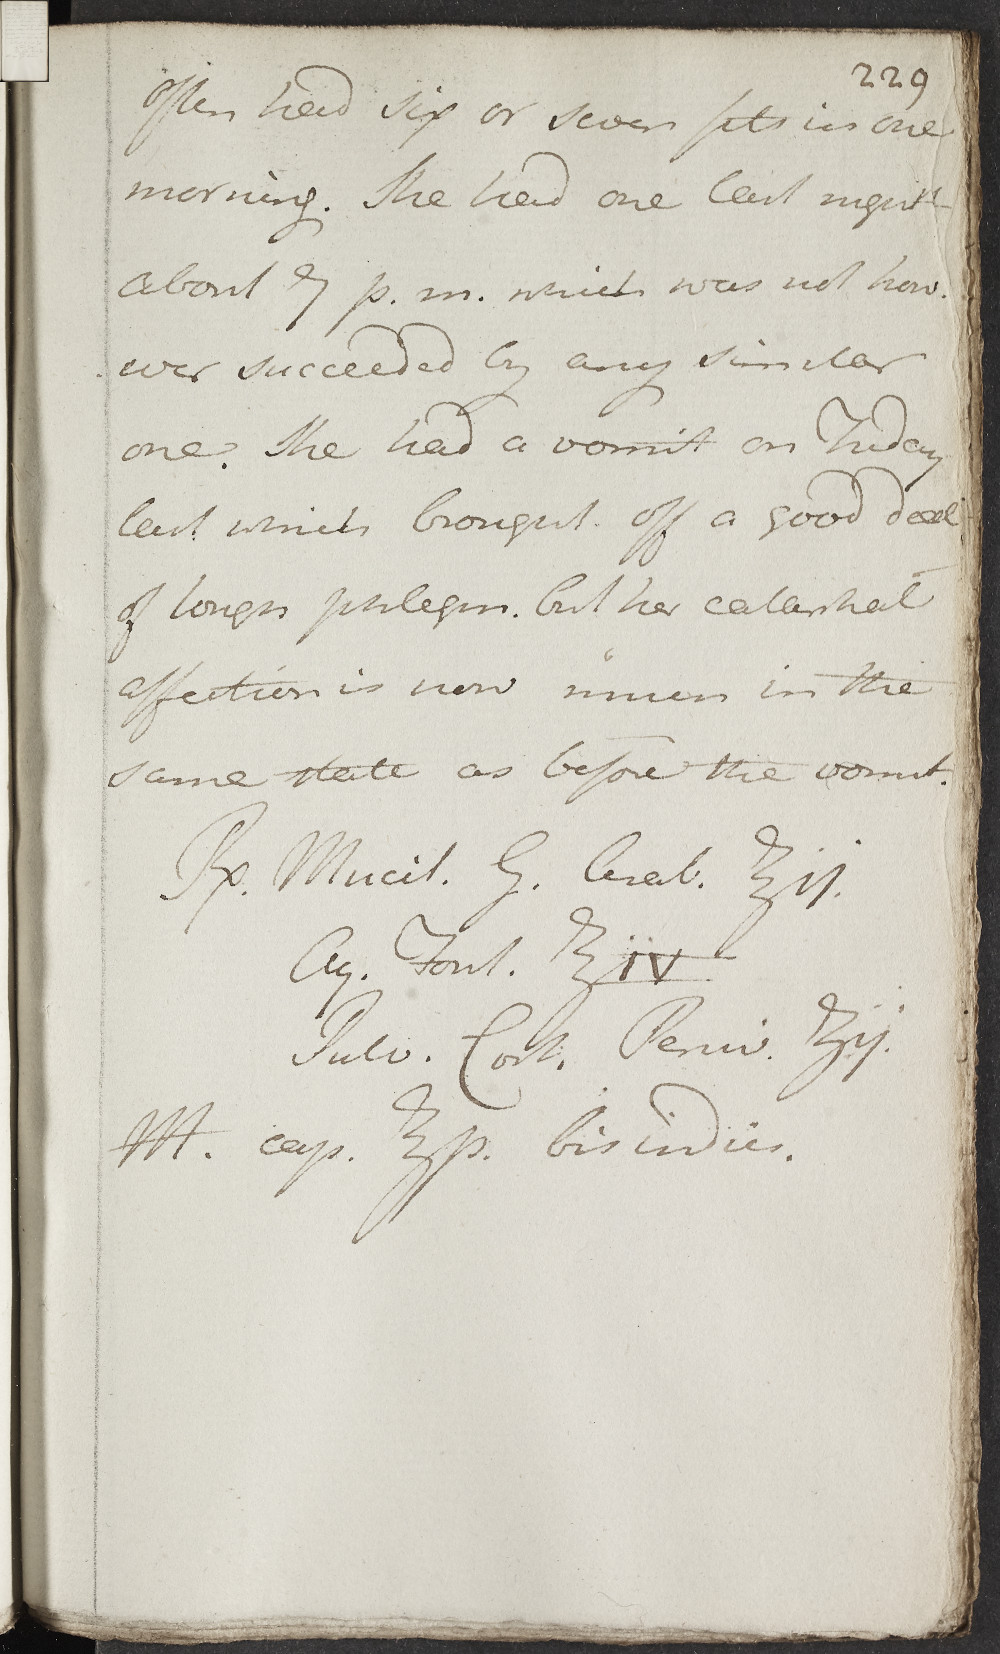 229
often had six or seven fits in one
morning. She had one last night
about 7 p. m. which was not how-
ever succeeded by any similar
one. She had a vomit on Friday
last which brought off a good deal
of tough phlegm. but her catarrhal
affection is now much in the
same state as before the vomit.
Rx. Mucil. G. Arab. ℥ij.
Aq. Font. ℥iv
Pulv. Cort. Peruv. ʒij.
M. cap. ℥ß. bis indies.